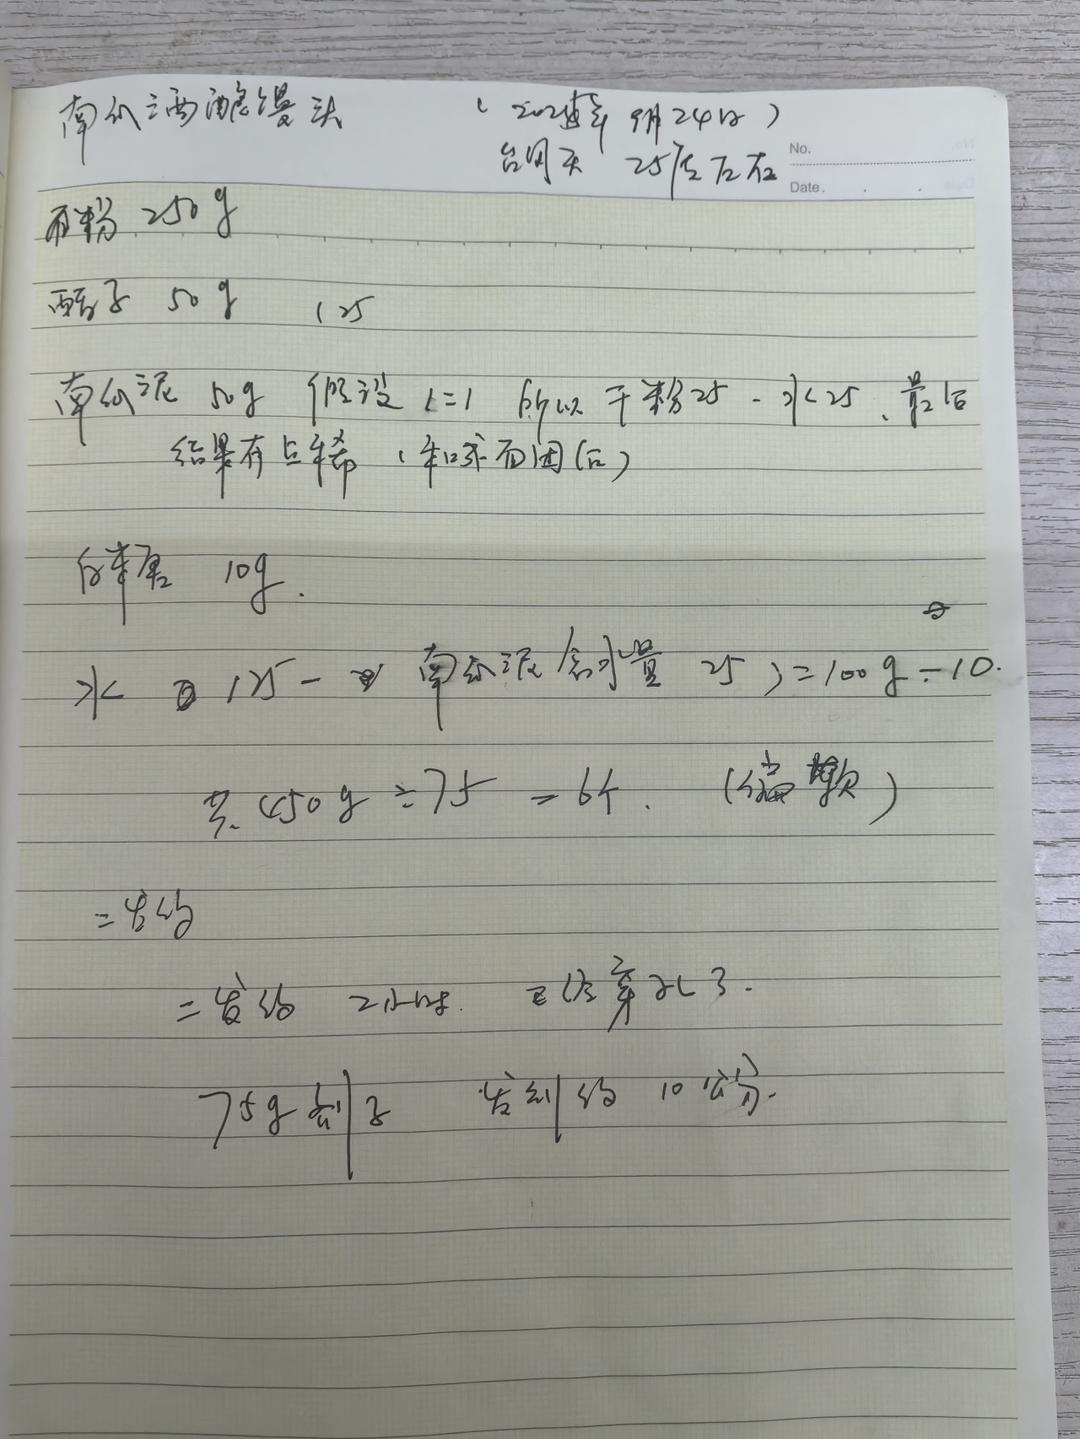 南瓜酒酿馒头 (2025年9月24日)
25度左右
No.
Date.
面粉 250g
酵子 50g 125
南瓜泥 50g 假设1=1 所以干粉25-水25、最后
结果有点稀(和成面团后)
白砂糖 10g.
水 125- 南瓜泥含水量 25)=100g-10.
共 450g÷75=6个. (偏软)
二发约
二发约 2小时. 已经穿孔了.
75g剂子 发到约 10公分.